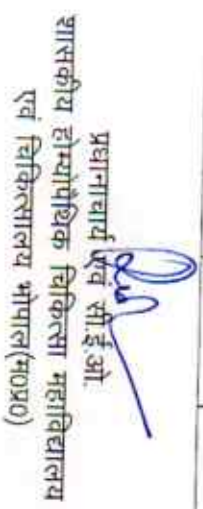 प्रधानाचार्य एवं सी.ई.ओ.
शासकीय होम्योपैथिक चिकित्सा महाविद्यालय
एवं चिकित्सालय भोपाल(म०प्र०)